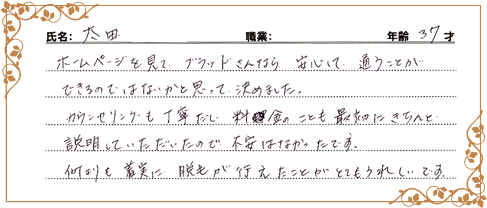 氏名: 太田 職業: 年齢 37 才
ホームページを見て、ブラッドさんなら 安心して 通うことが
できるのではないかと思って決めました。
カウンセリングも丁寧だし 料金のことも最初にきちんと
説明していただいたので 不安はなかったです。
何よりも着実に 脱毛が行えたことがとてもうれしいです。